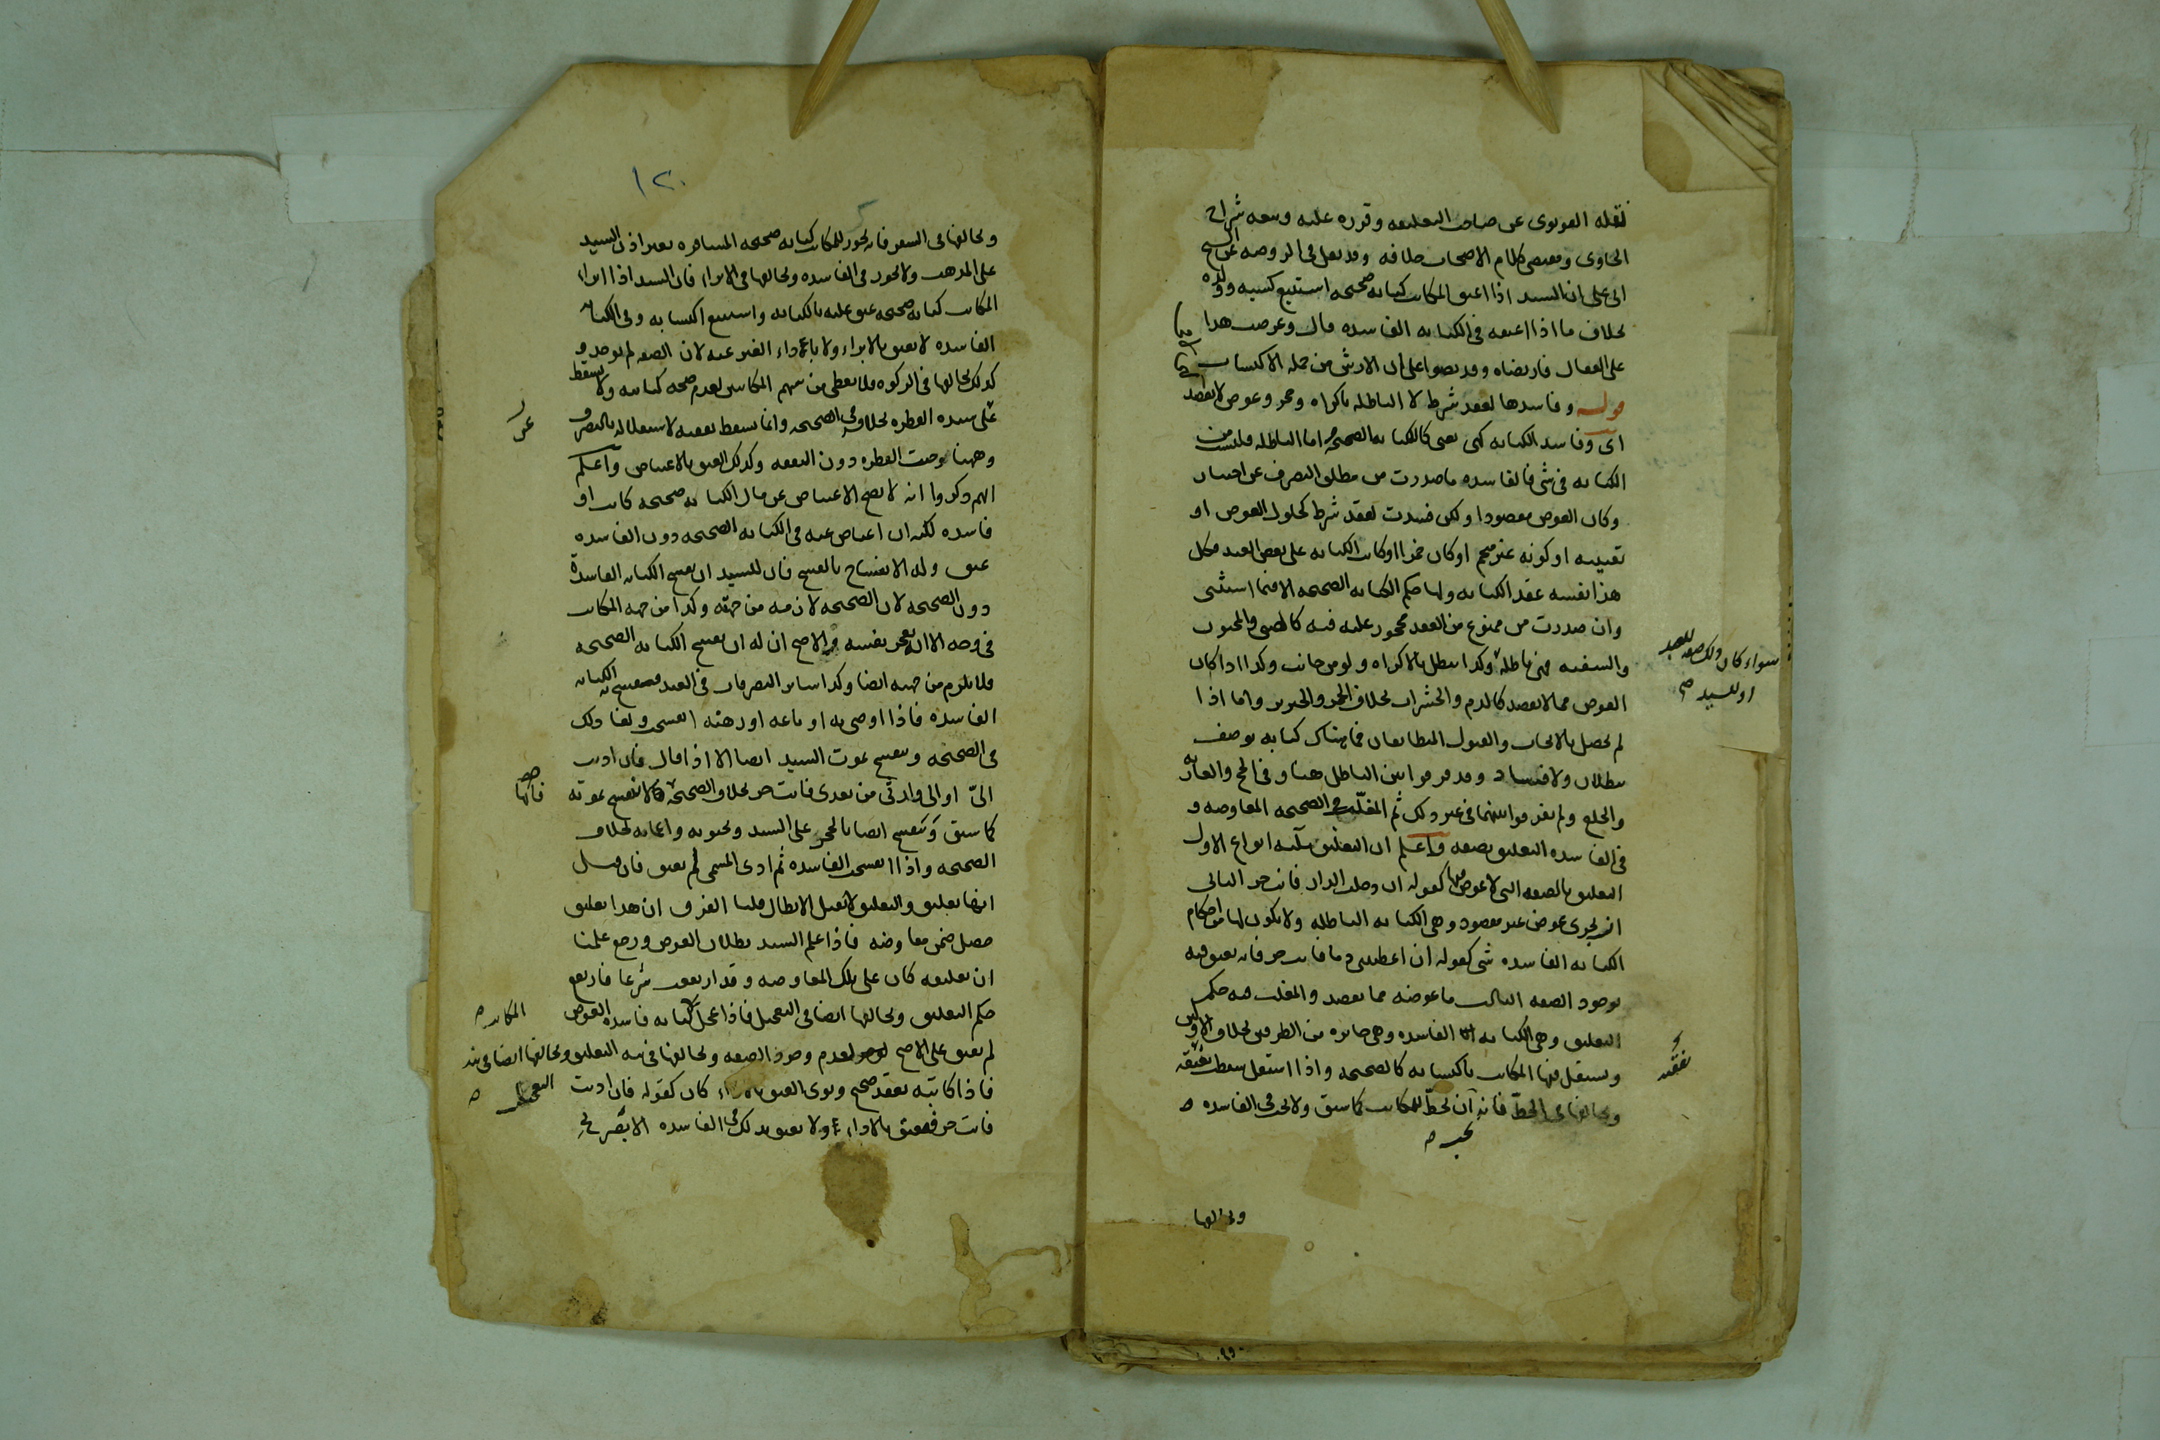 نقله القونوى عن صاحب التعليقه وقرره عليه وتبعه شراح
الحاوى ومقتضى كلام الاصحاب خلافه وقد نقل فى الروضه عن
الى على ان السيد اذا اعتق المكاتب كتابه صحيحه استتبع كسبه وولده
بخلاف ما اذا اعتقه فى الكتابه الفاسده قال وعرضت هذا
على القفال فارتضاه وقد نصوا على ان الارش من جمله الاكساب
قوله وفاسدها لفقد شرط لا الباطله باكراه وحجر وعوض لا يقصد
اى وفاسد الكتابه كهى يعنى كالكتابه الصحيحه اما الباطله فليست من
الكتابه فى شى فالفاسده ما صدرت من مطلق التصرف عن اختيار
وكان العوض مقصودا ولكن فسدت لفقد شرط كحلول العوض او
تعيينه او كونه غير منجم او كان خمرا او كانت الكتابه على بعض العبد فكل
هذا يفسد عقد الكتابه ولها حكم الكتابه الصحيحه الا فيما استثنى
وان صدرت من ممنوع من العقد محجور عليه فيه كالصبى والمجنون
والسفيه فهى باطله وكذا تبطل بالاكراه ولو من جانب وكذا اذا كان
العوض مما لا يقصد كالدم والحشرات بخلاف الخمر والخنزير واما اذا
لم يحصل بالايجاب والقبول المتطابقان فما هناك كتابه توصف
ببطلان ولا فساد وقد فرقوا بين الباطل هنا وفى الحج والعاريه
والخلع ولم يفرقوا بينهما فى غير ذلك ثم المغلب فى الصحيحه المعاوضه و
فى الفاسده التعليق بصفه واعلم ان التعليق ثلثه انواع الاول
التعليق بالصفه التى لا عوض فيها كقوله ان دخلت الدار فانت حر الثانى
ان يجرى عوض غير مقصود وهى الكتابه الباطله ولا يكون لها من احكام
الكتابه الفاسده شى كقوله ان اعطيتنى دما فانت حر فانه يعتق فيه
بوجود الصفه الثالث ما عوضه مما يقصد والمغلب فيه حكم
التعليق وهى الكتابه الفاسده وهى جائزه من الطرفين بخلاف الاولين
ويستقل فيها المكاتب باكسابه كالصحيحه واذا استقل سقطت نفقته
ويخالفها فى الحط فانه ان يحط للمكاتب كما سبق ولا يجب فى الفاسده
يجب
ويخالفها
سواء كان ذلك صفه للعبد
او للسيد صح
نفقته
١٢٠
ويخالفها فى السفر فانه يجوز للمكاتب كتابه صحيحه المسافره بغير اذن السيد
على المذهب ولا يجوز فى الفاسده ويخالفها فى الابراء فان السيد اذا ابرا
المكاتب كتابه صحيحه عتق عليه بالكتابه واستتبع اكتسابه وفى الكتابه
الفاسده لا يعتق بالابراء ولا باداء الغير عنه لان الصفه لم توجد و
كذلك يخالفها فى الزكوه فلا يعطى من سهم المكاتبين لعدم صحه كتابته ولا يسقط
على سيده الفطره بخلاف فى الصحيحه وانما يسقط نفقته لاستقلاله بالتصرف
وههنا وجبت الفطره دون النفقه وكذلك العتق بالاعتياض واعلم
انهم ذكروا انه لا يصح الاعتياض عن مال الكتابه صحيحه كانت او
فاسده لكنه ان اعتاض عنه فى الكتابه الصحيحه دون الفاسده
عتق وله الانفساخ بالفسخ فان للسيد ان يفسخ الكتابه الفاسده
دون الصحيحه لان الصحيحه لازمه من جهته وكذا من جهه المكاتب
فى وجه الا ان يعجز نفسه والاصح ان له ان يفسخ الكتابه الصحيحه
فلا يلزم من جهته ايضا وكذا سائر التصرفات فى العبد تنفسخ به الكتابه
الفاسده فاذا اوصى به او باعه او رهنه انفسخت ولغا ذلك
فى الصحيحه وتنفسخ بموت السيد ايضا الا اذا قال فان اديت
الىّ او الى وارثى من بعدى فانت حر بخلاف الصحيحه لا تنفسخ بموته
كما سبق وتنفسخ ايضا بالحجر على السيد وبجنونه واغمائه بخلاف
الصحيحه واذا انفسخت الفاسده ثم ادى المسمى لم يعتق فان قيل
انها تعليق والتعليق لا يقبل الابطال قلنا الفرق ان هذا تعليق
حصل ضمن معاوضه فاذا علم السيد بطلان العوض ورجع علمنا
ان تعليقه كان على تلك المعاوضه وقد ارتفعت شرعا فارتفع
حكم التعليق ويخالفها ايضا فى التعجيل فاذا عجل كتابه فاسده العوض
لم يعتق على الاصح لعدم وجود الصفه ويخالفها فى نيه التعليق ويخالفها ايضا فى نيه
فاذا كاتبه بعقد صحيح ونوى العتق بالاداء كان كقوله فان اديت
فانت حر فيعتق بالاداء ولا يعتق بذلك فى الفاسده الا بتصريح
فانها
المكاتب
التعجيل